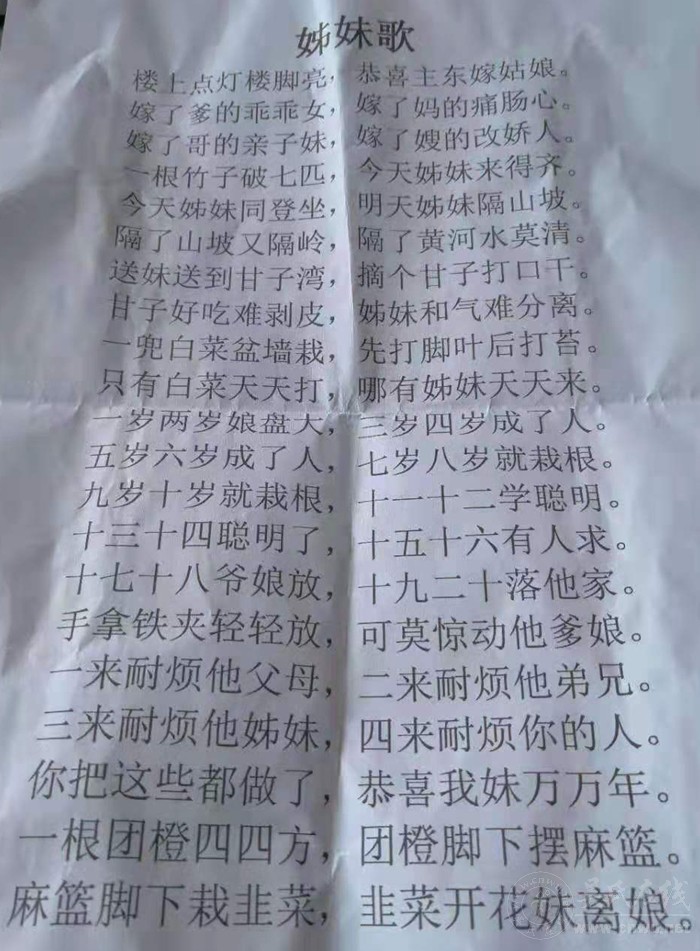 姊妹歌
楼上点灯楼脚亮，恭喜主东嫁姑娘。
嫁了爹的乖乖女，嫁了妈的痛肠心。
嫁了哥的亲子妹，嫁了嫂的改娇人。
一根竹子破七匹，今天姊妹来得齐。
今天姊妹同登坐，明天姊妹隔山坡。
隔了山坡又隔岭，隔了黄河水莫清。
送妹送到甘子湾，摘个甘子打口干。
甘子好吃难剥皮，姊妹和气难分离。
一兜白菜盆墙栽，先打脚叶后打苔。
只有白菜天天打，哪有姊妹天天来。
一岁两岁娘盘大，三岁四岁成了人。
五岁六岁成了人，七岁八岁就栽根。
九岁十岁就栽根，十一十二学聪明。
十三十四聪明了，十五十六有人求。
十七十八爷娘放，十九二十落他家。
手拿铁夹轻轻放，可莫惊动他爹娘。
一来耐烦他父母，二来耐烦他弟兄。
三来耐烦他姊妹，四来耐烦你的人。
你把这些都做了，恭喜我妹万万年。
一根团橙四四方，团橙脚下摆麻篮。
麻篮脚下栽韭菜，韭菜开花妹离娘。